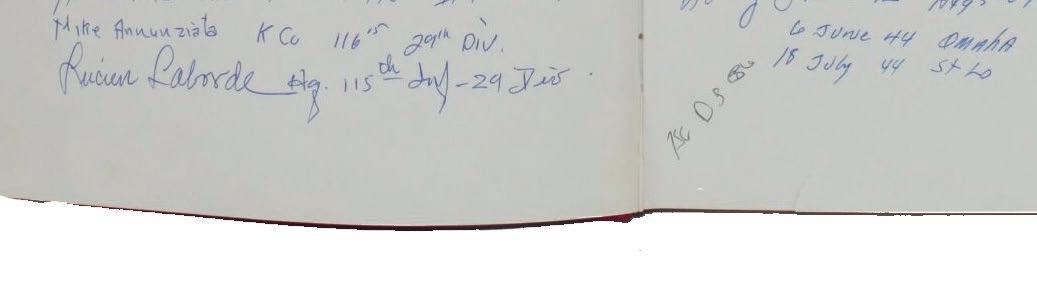 Mike Annunziata K Co 116th 29th Div.
Lucien Laborde Hq. 115th Inf - 29 Div.
6 June 44 Omaha
18 July 44 St Lo